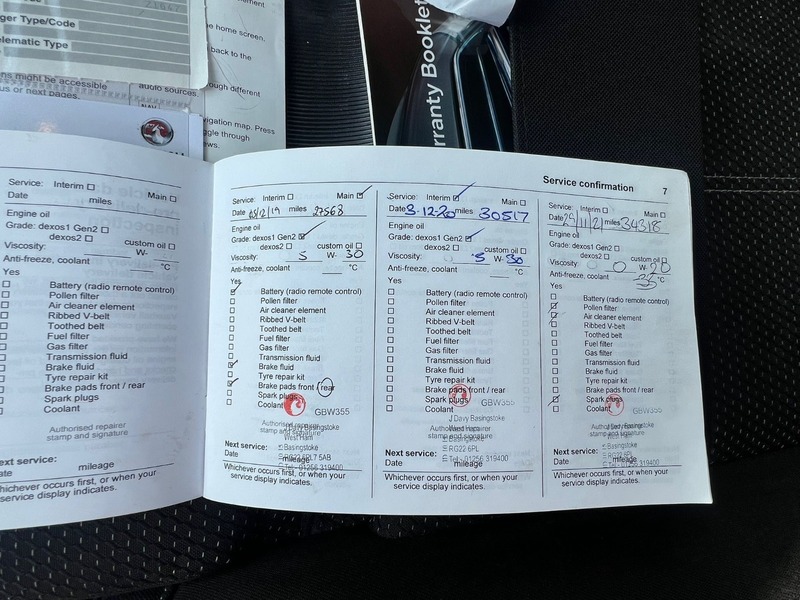 ger Type/Code
lematic Type
e home screen.
back to the
ns might be accessible
us or next pages.
audio sources.
ough different
NAV
vigation map. Press
ggle through
ews.
rranty Booklet
Service: Interim ☐ Main ☐
Date miles
Engine oil
Grade: dexos1 Gen2 ☐
dexos2 ☐ custom oil ☐
Viscosity: W-
Anti-freeze, coolant °C
Yes
☐ Battery (radio remote control)
☐ Pollen filter
☐ Air cleaner element
☐ Ribbed V-belt
☐ Toothed belt
☐ Fuel filter
☐ Gas filter
☐ Transmission fluid
☐ Brake fluid
☐ Tyre repair kit
☐ Brake pads front / rear
☐ Spark plugs
☐ Coolant
Authorised repairer
stamp and signature
Next service:
Date mileage
Whichever occurs first, or when your
service display indicates.
Service: Interim ☐ Main ☑
Date 05/12/19 miles 27568
Engine oil
Grade: dexos1 Gen2 ☑
dexos2 ☐ custom oil ☐
Viscosity: 5 W- 30
Anti-freeze, coolant °C
Yes
☑ Battery (radio remote control)
☐ Pollen filter
☐ Air cleaner element
☐ Ribbed V-belt
☐ Toothed belt
☐ Fuel filter
☐ Gas filter
☐ Transmission fluid
☑ Brake fluid
☐ Tyre repair kit
☑ Brake pads front / rear
☐ Spark plugs
☐ Coolant
GBW355
Authorised repairer
stamp and signature
West Ham
Basingstoke
Tel: 01256 319400
Next service:
Date mileage
Whichever occurs first, or when your
service display indicates.
Service confirmation 7
Service: Interim ☑ Main ☐
Date 3-12-20 miles 30517
Engine oil
Grade: dexos1 Gen2 ☑
dexos2 ☐ custom oil ☐
Viscosity: 5 W- 30
Anti-freeze, coolant °C
Yes
☐ Battery (radio remote control)
☐ Pollen filter
☐ Air cleaner element
☐ Ribbed V-belt
☐ Toothed belt
☐ Fuel filter
☐ Gas filter
☐ Transmission fluid
☐ Brake fluid
☐ Tyre repair kit
☐ Brake pads front / rear
☐ Spark plugs
☐ Coolant
GBW355
J Davy Basingstoke
Authorised repairer
stamp and signature
Basingstoke
RG22 6PL
Tel: 01256 319400
Next service:
Date mileage
Whichever occurs first, or when your
service display indicates.
Service: Interim ☐ Main ☐
Date 29/11/21 miles 34318
Engine oil
Grade: dexos1 Gen2 ☐
dexos2 ☐ custom oil ☐
Viscosity: 0 W- 20
Anti-freeze, coolant -35 °C
Yes
☐ Battery (radio remote control)
☑ Pollen filter
☑ Air cleaner element
☐ Ribbed V-belt
☐ Toothed belt
☐ Fuel filter
☐ Gas filter
☐ Transmission fluid
☐ Brake fluid
☐ Tyre repair kit
☐ Brake pads front / rear
☑ Spark plugs
☐ Coolant
GBW355
Authorised repairer
stamp and signature
Basingstoke
RG22 6PL
Tel: 01256 319400
Next service:
Date mileage
Whichever occurs first, or when your
service display indicates.